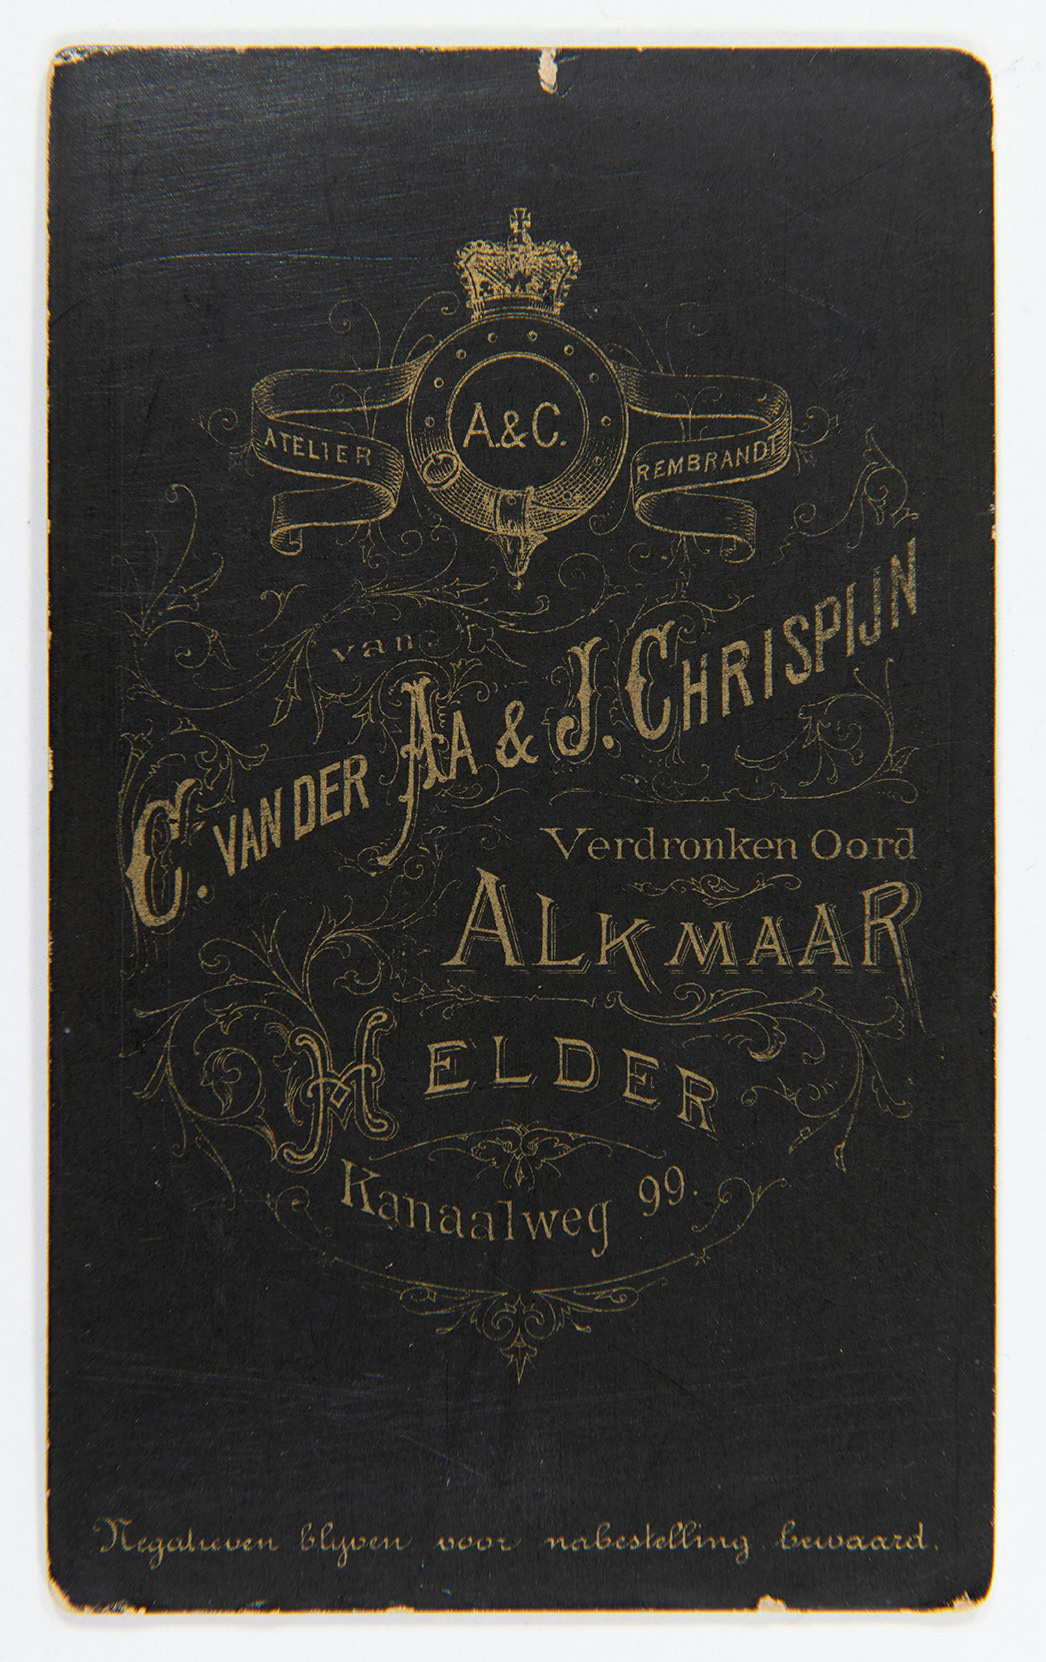 A. & C.
ATELIER REMBRANDT
van
C. VAN DER AA & J. CHRISPIJN
Verdronken Oord
ALKMAAR
HELDER
Kanaalweg 99.
Negatieven blijven voor nabestelling bewaard.